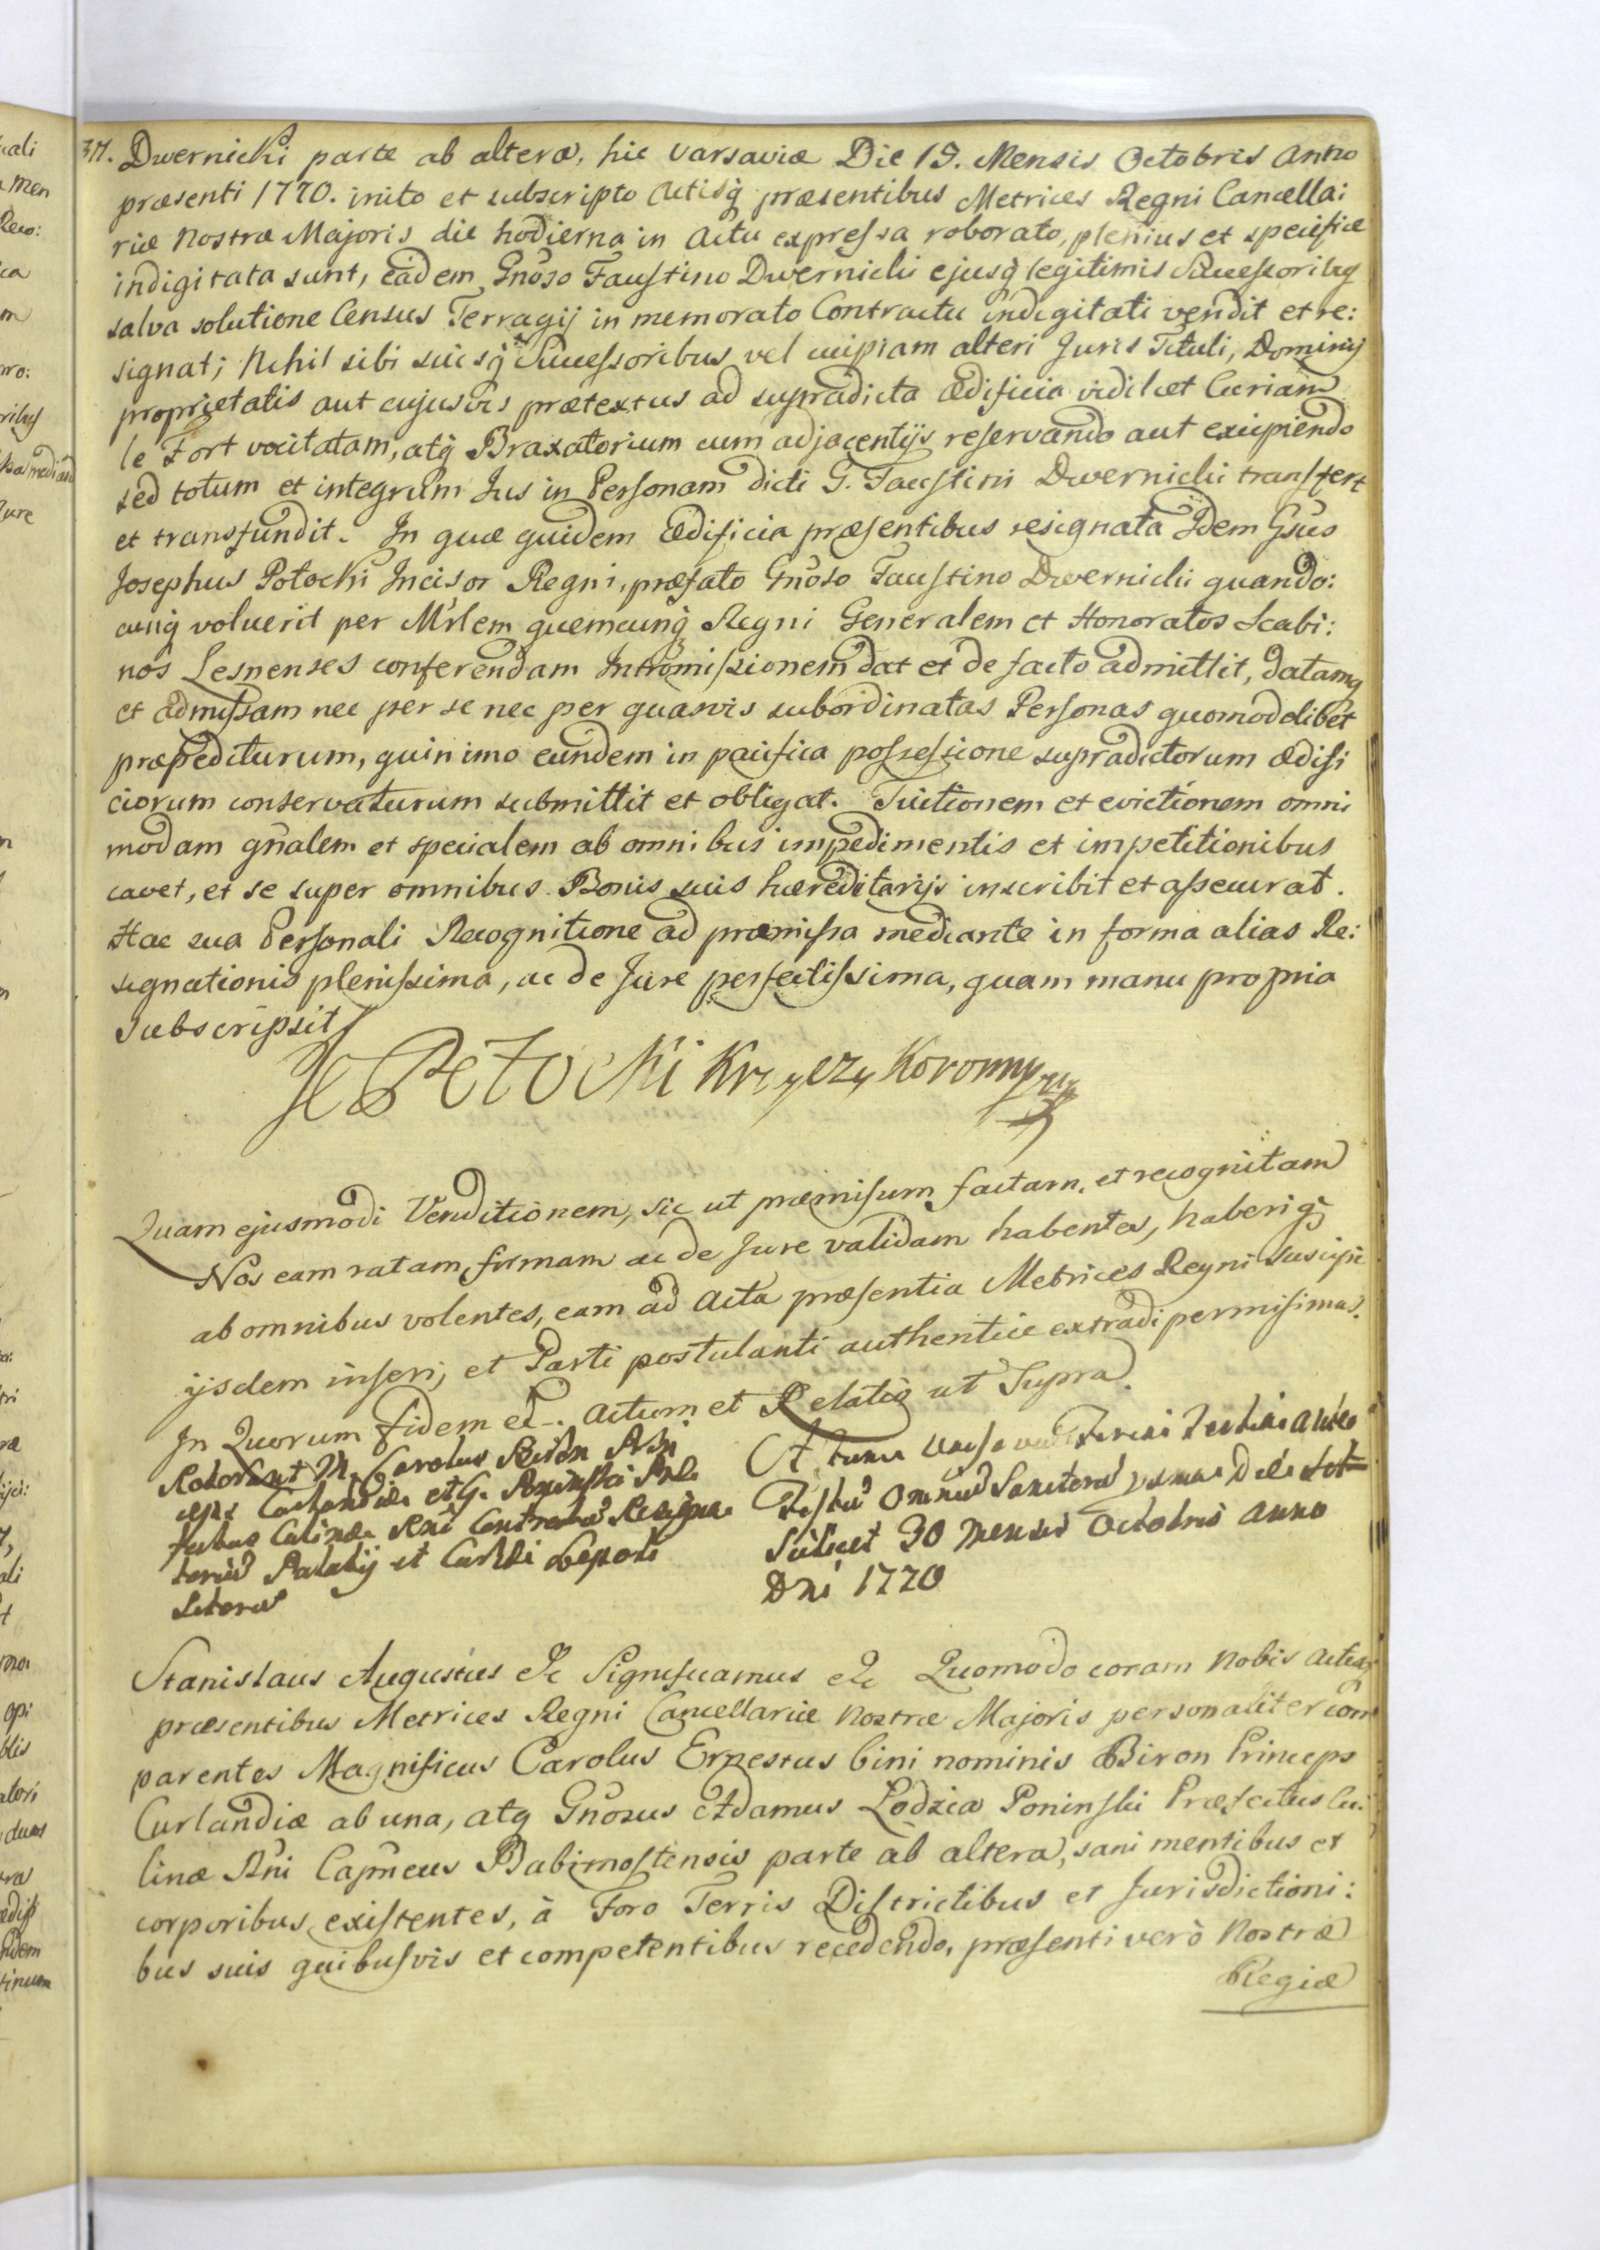 377. Dwernicki parte ab altera, hic Varsaviæ Die 19. Mensis Octobris Anno
præsenti 1770. inito et subscripto Actisq̃ præsentibus Metrices Regni Cancella:
riæ Nostræ Majoris die hodierna in Actu expressa roborato, plenius et specificè
indigitata sunt, eadem Gñoso Faustino Dwernicki ejusq̃ legitimis Successoribus
salva solutione Census Terragij in memorato Contractu indigitati vendit et re:
signat; Nihil sibi suisq̃ Successoribus vel cuipiam alteri Juris Tituli, Dominij
proprietatis aut cujusvis prætextus ad supradicta Ædificia videlicet Curiam
le Fort vocitatam, atq̃ Braxatorium cum adjacentijs reservando aut excipiendo
sed totum et integrum Jus in Personam dicti G. Faustini Dwernicki transfert
et transfundit. In quæ quidem Ædificia præsentibus resignata Idem Gsus
Josephus Potocki Incisor Regni, præfato Gñoso Faustino Dwernicki quando:
cunq̃ voluerit per Mrlem quemcunq̃ Regni Generalem et Honoratos Scabi:
nos Lesnenses conferendam Intromissionem dat et de facto admittit, datamq̃
et admissam nec per se nec per quasvis subordinatas Personas quomodolibet
præpediturum, quin imo eundem in pacifica possessione supradictorum Ædifi
ciorum conservaturum submittit et obligat. Tuitionem et evictionem omni
modam gñalem et specialem ab omnibus impedimentis et impetitionibus
cavet, et se super omnibus Bonis suis hæreditarijs inscribit et assecurat.
Hac sua Personali Recognitione ad præmissa mediante in forma alias Re:
signationis plenissima, ac de Jure perfectissima, quam manu propria
subscripsit
Potocki Krayczy Koronny
Quam ejusmodi Venditionem, sic ut præmisum factam, et recognitam
Nos eam ratam, firmam ac de Jure validam habentes, haberiq̃
ab omnibus volentes, eam ad Acta præsentia Metrices Regni suscipi
ijsdem inseri, et Parti postulanti authentice extradi permisimus.
In Quorum fidem et. Actum et Relatio ut Supra.
Roborant M. Carolus Biron Prin
ceps Curlandiæ et G. Poninski Præ
fectus Culinæ Rni Contractus Resigna
torius Palatij et
Actum Varsaviæ Feria Tertia ante
Festum Omnium Sanctorum Die
scilicet 30 Mensis Octobris Anno
Dñi 1770
Stanislaus Augustus &c Significamus &c Quomodo coram Nobis Actisq̃
præsentibus Metrices Regni Cancellariæ Nostræ Majoris personaliter com
parentes Magnificus Carolus Ernestus bini nominis Biron Princeps
Curlandiæ ab una, atq̃ Gñosus Adamus Lodzia Poninski Præfectus Cu:
linæ Rñi Capñeus Babimostensis parte ab altera, sani mentibus et
corporibus existentes, à Foro Terris Districtibus et Jurisdictioni:
bus suis quibusvis et competentibus recedendo, præsenti verò Nostræ
Regiæ